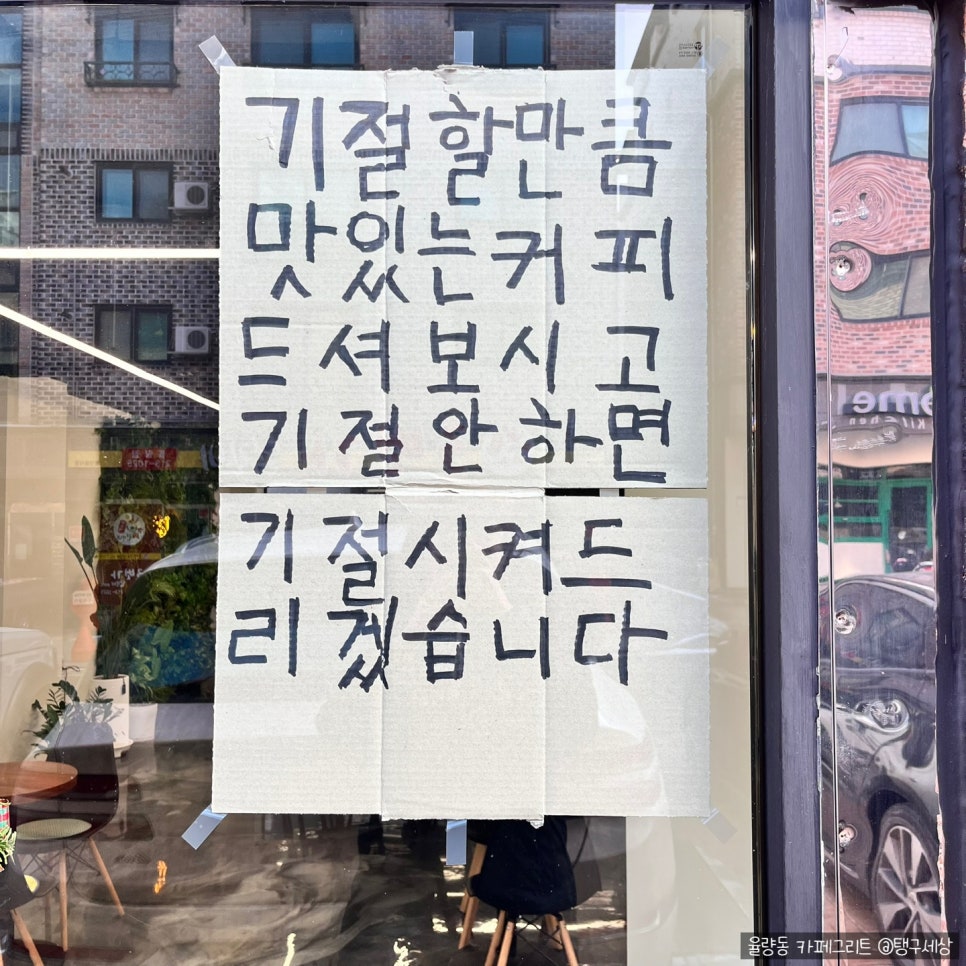 기절할만큼
맛있는커피
드셔보시고
기절안하면
기절시켜드
리겠습니다
율량동 카페그리트 @탱구세상